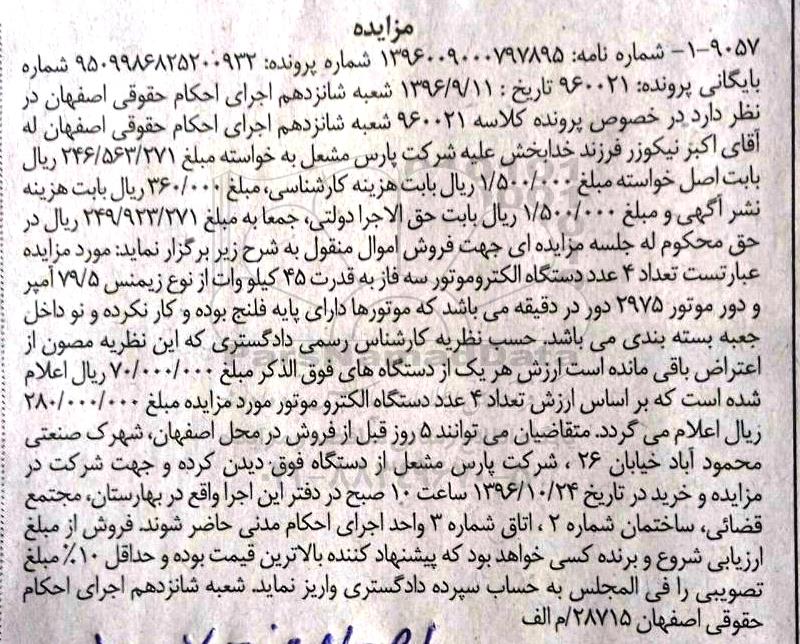 مزایده
۹۰۵۷-۱- شماره نامه: ۱۳۹۶۰۰۹۰۰۰۷۹۷۸۹۵ شماره پرونده: ۹۵۰۹۹۸۶۸۲۵۲۰۰۹۳۲ شماره
بایگانی پرونده: ۹۶۰۰۲۱ تاریخ : ۱۳۹۶/۹/۱۱ شعبه شانزدهم اجرای احکام حقوقی اصفهان در
نظر دارد در خصوص پرونده کلاسه ۹۶۰۰۲۱ شعبه شانزدهم اجرای احکام حقوقی اصفهان له
آقای اکبر نیکوزر فرزند خدابخش علیه شرکت پارس مشعل به خواسته مبلغ ۲۴۶/۵۶۳/۲۷۱ ریال
بابت اصل خواسته مبلغ ۱/۵۰۰/۰۰۰ ریال بابت هزینه کارشناسی، مبلغ ۳۶۰/۰۰۰ ریال بابت هزینه
نشر آگهی و مبلغ ۱/۵۰۰/۰۰۰ ریال بابت حق الاجرا دولتی، جمعا به مبلغ ۲۴۹/۹۲۳/۲۷۱ ریال در
حق محکوم له جلسه مزایده ای جهت فروش اموال منقول به شرح زیر برگزار نماید: مورد مزایده
عبارتست تعداد ۴ عدد دستگاه الکتروموتور سه فاز به قدرت ۴۵ کیلو وات از نوع زیمنس ۷۹/۵ آمپر
و دور موتور ۲۹۷۵ دور در دقیقه می باشد که موتورها دارای پایه فلنج بوده و کار نکرده و نو داخل
جعبه بسته بندی می باشد. حسب نظریه کارشناس رسمی دادگستری که این نظریه مصون از
اعتراض باقی مانده است ارزش هر یک از دستگاه های فوق الذکر مبلغ ۷۰/۰۰۰/۰۰۰ ریال اعلام
شده است که بر اساس ارزش تعداد ۴ عدد دستگاه الکترو موتور مورد مزایده مبلغ ۲۸۰/۰۰۰/۰۰۰
ریال اعلام می گردد. متقاضیان می توانند ۵ روز قبل از فروش در محل اصفهان، شهرک صنعتی
محمود آباد خیابان ۲۶ ، شرکت پارس مشعل از دستگاه فوق دیدن کرده و جهت شرکت در
مزایده و خرید در تاریخ ۱۳۹۶/۱۰/۲۴ ساعت ۱۰ صبح در دفتر این اجرا واقع در بهارستان، مجتمع
قضائی، ساختمان شماره ۲ ، اتاق شماره ۳ واحد اجرای احکام مدنی حاضر شوند. فروش از مبلغ
ارزیابی شروع و برنده کسی خواهد بود که پیشنهاد کننده بالاترین قیمت بوده و حداقل ۱۰٪ مبلغ
تصویبی را فی المجلس به حساب سپرده دادگستری واریز نماید. شعبه شانزدهم اجرای احکام
حقوقی اصفهان ۲۸۷۱۵/م الف